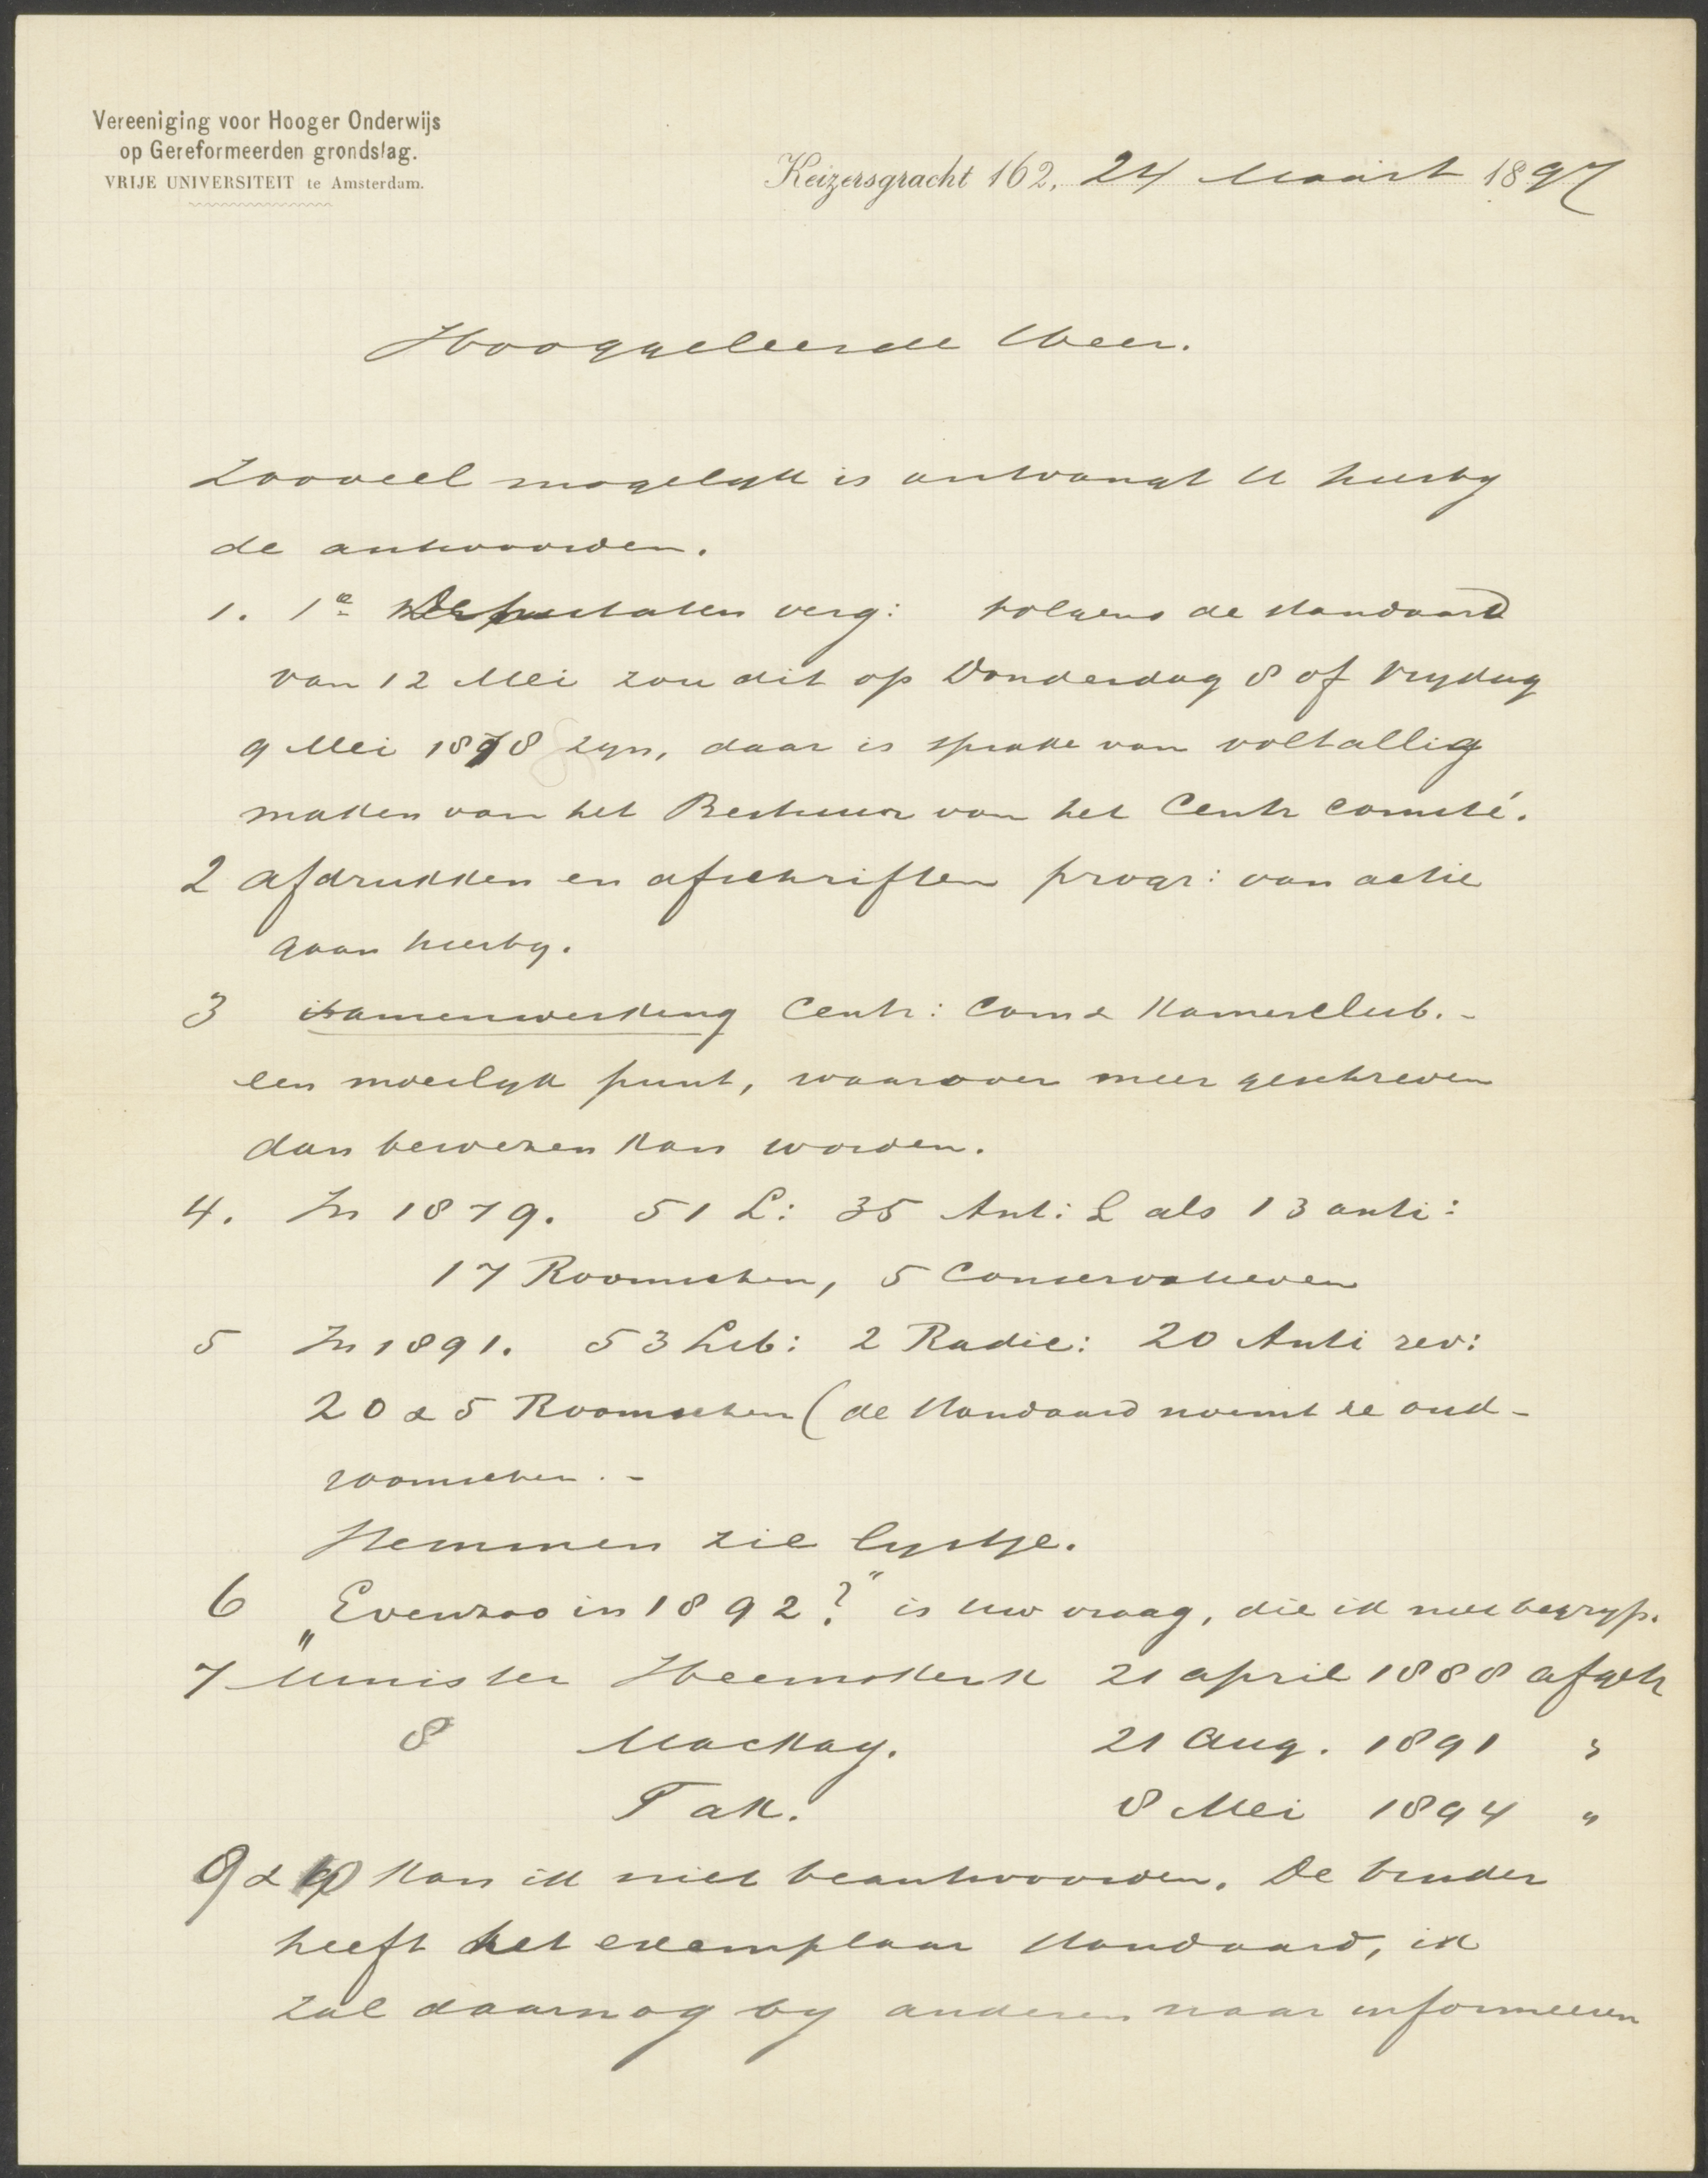 Vereeniging voor Hooger Onderwijs
op Gereformeerden grondslag.
VRIJE UNIVERSITEIT te Amsterdam.
Keizersgracht 162, 24 Maart 1897
Hooggeleerde Heer.
Zooveel mogelyk is ontvangt U hierby
de antwoorden.
1. 1e Deputaten verg: volgens de Standaard
van 12 Mei zou dit op Donderdag 8 of Vrydag
9 Mei 1878 zyn, daar is sprake van voltallig
maken van het Bestuur van het Centr Comité.
2 afdrukken en afschriften progr: van actie
gaan hierby.
3 samenwerking Centr: Com & Kamerclub. -
een moeilyk punt, waarover meer geschreven
dan bewezen kan worden.
4. In 1879. 51 L: 35 Anti: L als 13 anti:
17 Roomschen, 5 Conservatieven
5 In 1891. 53 Lib: 2 Radic: 20 Anti rev:
20 & 5 Roomschen (de Standaard noemt ze oud-
roomschen. -
Stemmen zie lystje.
6 „Evenzoo in 1892?" is uw vraag, die ik niet begryp.
7 Minister Heemskerk 21 april 1888 afgetr
8 Mackay. 21 Aug. 1891 "
Tak. 8 Mei 1894 "
9 & 10 kan ik niet beantwoorden. De binder
heeft het exemplaar Standaard, ik
zal daarnog by anderen naar informeeren